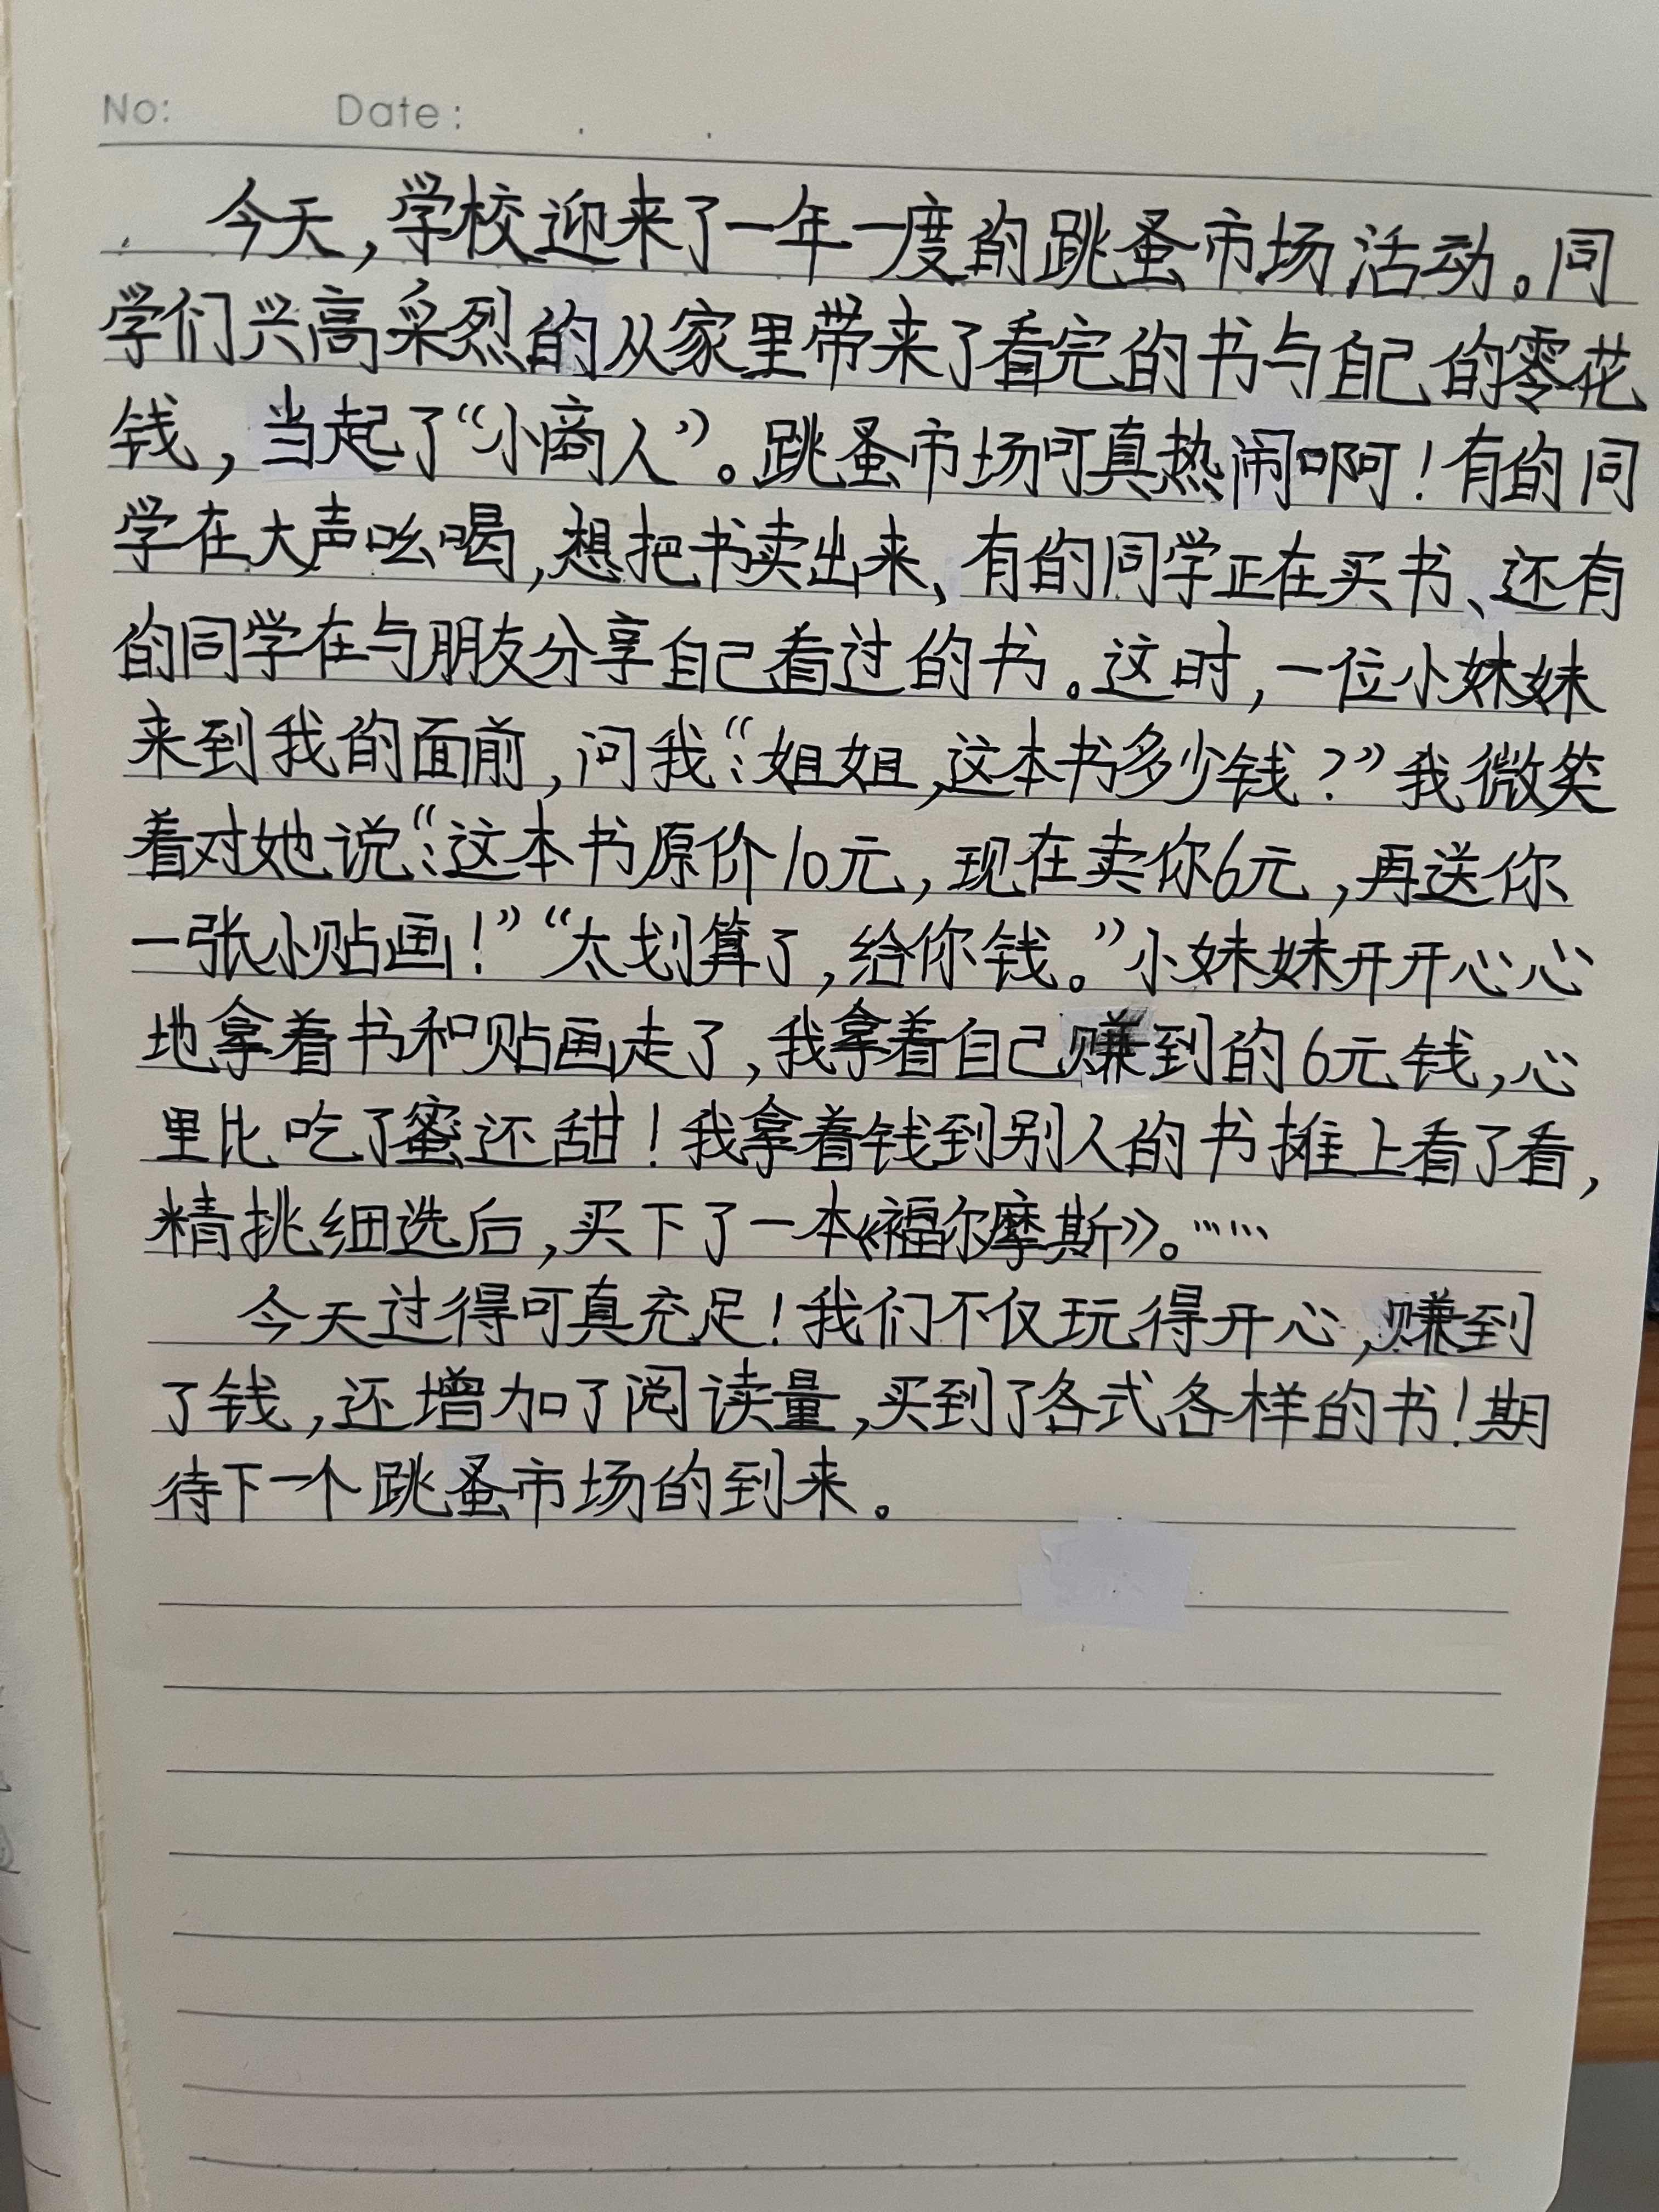 No: Date: . .
今天，学校迎来了一年一度的跳蚤市场活动。同
学们兴高采烈的从家里带来了看完的书与自己的零花
钱，当起了“小商人”。跳蚤市场可真热闹啊！有的同
学在大声吆喝，想把书卖出来、有的同学正在买书、还有
的同学在与朋友分享自己看过的书。这时，一位小妹妹
来到我的面前，问我：“姐姐，这本书多少钱？”我微笑
着对她说：“这本书原价10元，现在卖你6元，再送你
一张小贴画！”“太划算了，给你钱。”小妹妹开开心心
地拿着书和贴画走了，我拿着自己赚到的6元钱，心
里比吃了蜜还甜！我拿着钱到别人的书摊上看了看，
精挑细选后，买下了一本《福尔摩斯》。……
今天过得可真充足！我们不仅玩得开心，赚到
了钱，还增加了阅读量，买到了各式各样的书！期
待下一个跳蚤市场的到来。